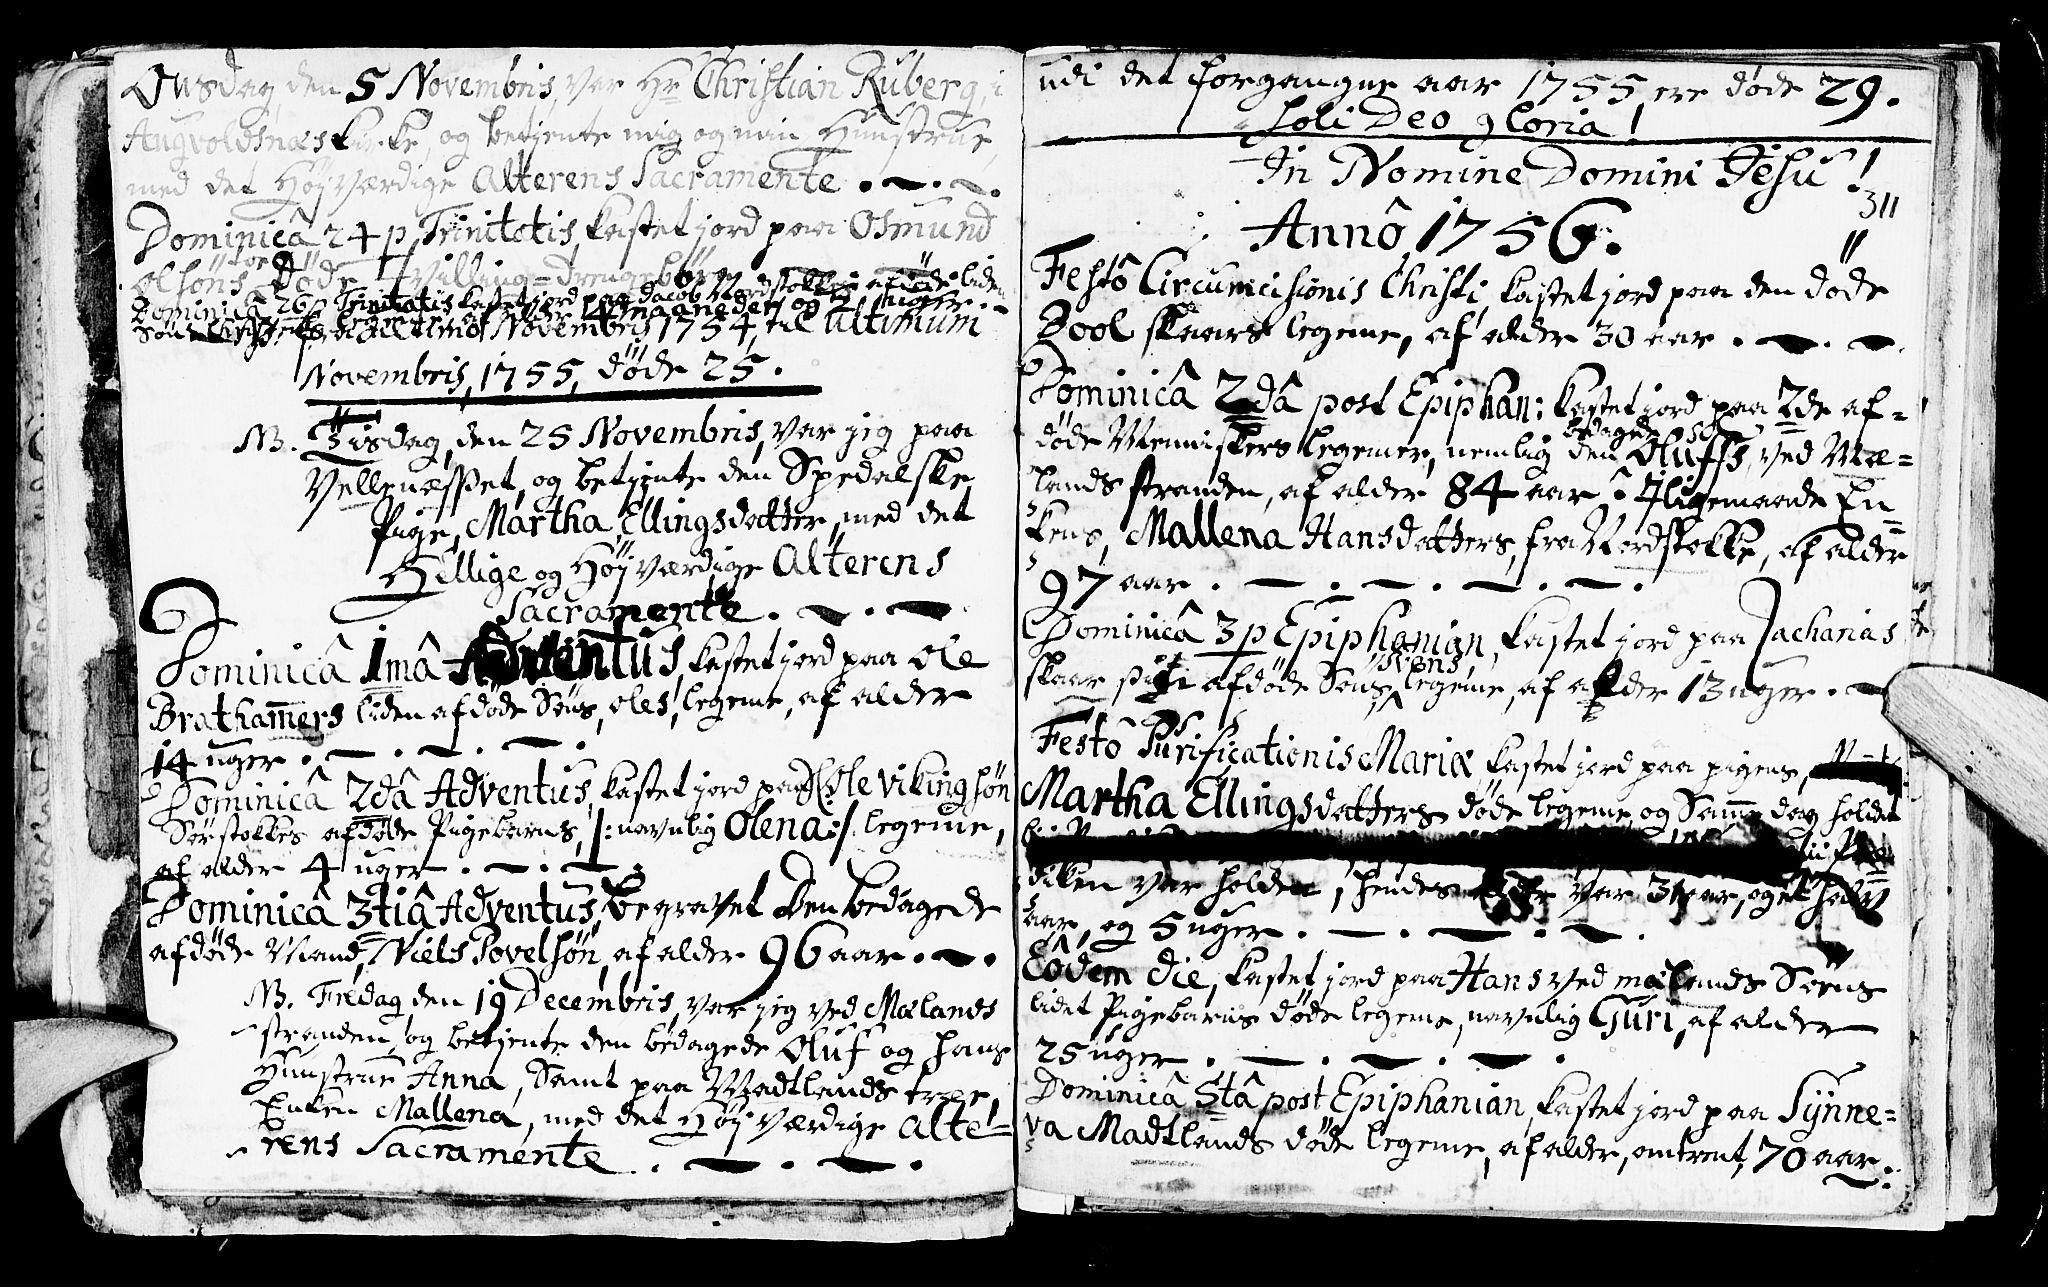 Onsdag, den 5 Novembris, var Hr Christian Ruberg, i
Augvoldsnæs kirke, og betjente mig og min Hustrue,
med det Höjværdige Alterens Sacramente.
Dominicâ 24 p. Trinitatis, kastet jord paa Osmund
Olsöns toe döde Tvilling=Drengebörn
Dominicâ 26 p Trinitatis kastet jord paa Jacob Nordstokkes afdöde liden
Sön maaneder og 2 uger.
Ultimo Novembris 1754, til Ultimum
Novembris, 1755, döde 25.
NB. Tisdag, den 25 Novembris, var jeg paa
Vellenæsset, og betjente den Spedalske
Pige, Martha Ellingsdatter, med det
Hellige og Höjværdige Alterens
Sacramente.
Dominicâ 1mâ Adventus, kastet jord paa Ole
Brathamers liden afdöde Söns, Oles, legeme, af alder
14 uger.
Dominicâ 2dâ Adventus, kastet jord paa Ole Vikingsön
Sörstokkes afdöde Pigebarns, /: navnlig Olena :/ legeme,
af alder 4 uger.
Dominicâ 3tiâ Adventus, begravet den bedagede
afdöde Mand, Niels Povelsön, af alder 96 aar.
NB. Fredag, den 19 Decembris, var jeg ved Mælands
stranden, og betjente den bedagede Oluf og hans
Hustrue Anna, samt paa Madtlands træe,
Enken Mallena, med det Höjværdige Alte=
rens Sacramente.
udi det forgangne aar 1755, ere döde 29.
Soli Deo gloria!
In Nomine Domini Jesu!
311
Annô 1756.
Festô Circumcisionis Christi, kastet jord paa den döde
Bool skaars legeme, af alder 30 aar.
Dominicâ 2dâ post Epiphan: kastet jord paa 2de af=
döde Menniskers legemer, nemlig den bedagede Olufs, ved Mæ=
lands stranden, af alder 84 aar. Iligemaade En=
kens, Mallena Hansdatters, fra Nordstokke, af alder
97 aar.
Dominicâ 3 p Epiphanian, kastet jord paa Zacharias
skaar afdöde Söns, Svens, legeme, af alder 13 uger.
Festô Purificationis Mariæ, kastet jord paa pigens,
Martha Ellingsdatters döde legeme, og Samme dag holdet
var holden, hendes var 31 aar, og et halv
aar, og 5 uger.
Eôdem die, kastet jord paa Hans ved mælands Söens
lidet Pigebarns döde legeme, navnlig Guri, af alder
25 uger.
Dominicâ 5tâ post Epiphanian, kastet jord paa Synne=
va Madtlands döde legeme, af alder, omtrent, 70 aar.